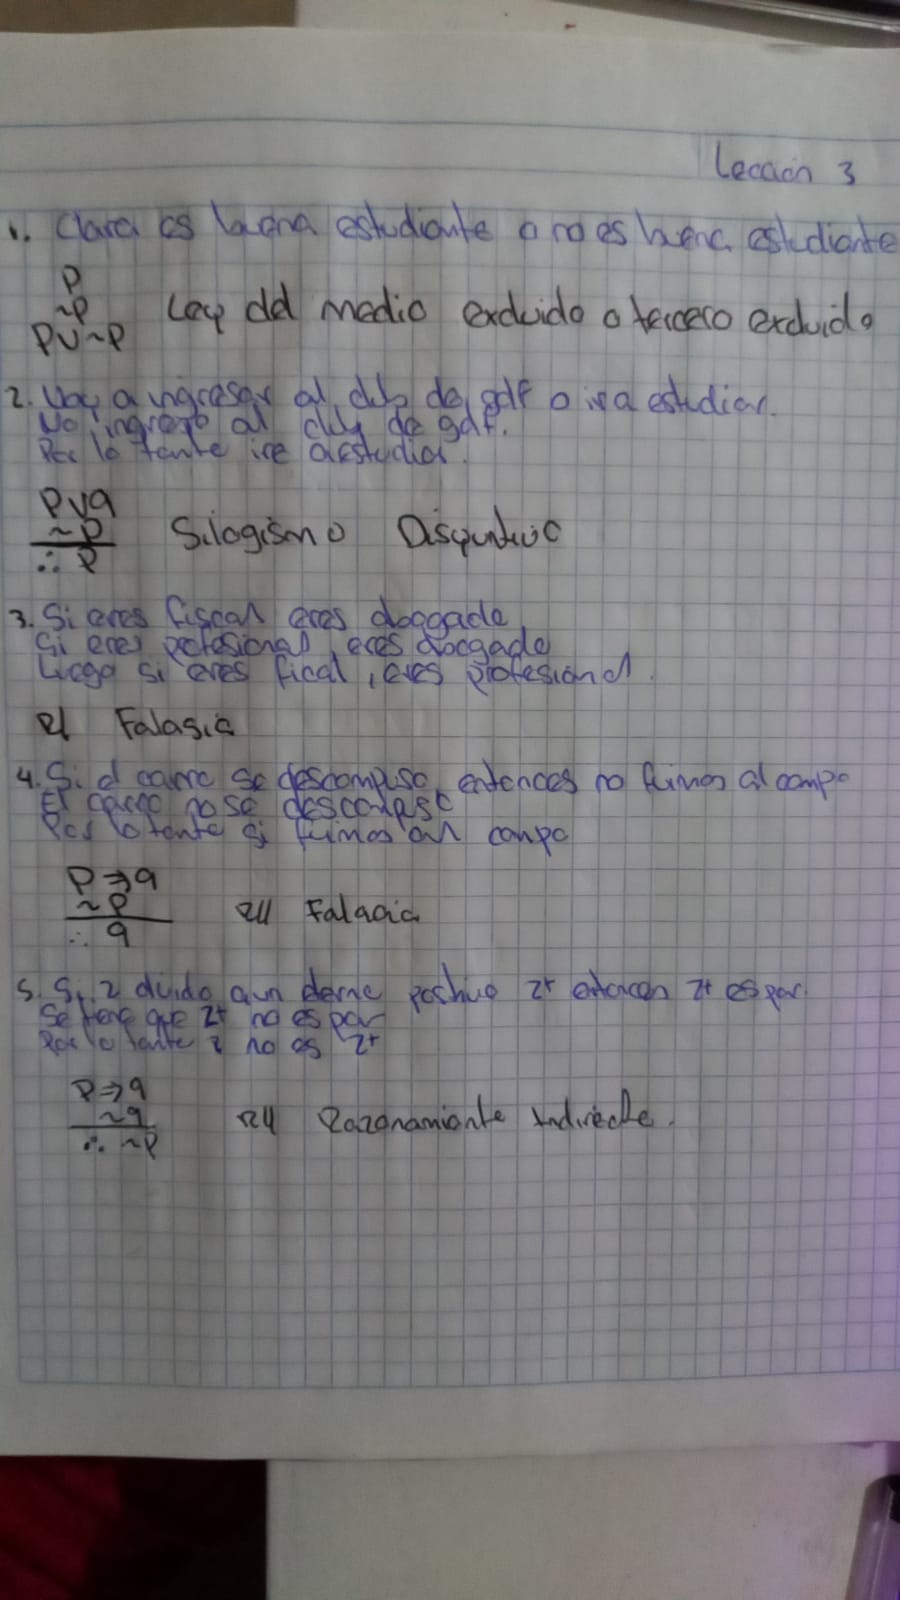 Lección 3
1. Clara es buena estudiante o no es buena estudiante
P
~p
PU~P Ley del medio excluido o tercero excluido
2. Voy a ingresar al club de golf o ir a estudiar.
No ingreso al club de golf.
Por lo tanto ire a estudiar.
PVq
~p Silogismo Disyuntivo
∴ P
3. Si eres fiscal eres abogado
Si eres profesional, eres abogado
Luego si eres fical, eres profesional.
R// Falasia
4. Si el carro se descompuso, entonces no fuimos al campo
El carro no se descompuso
Por lo tanto si fuimos al campo
P⇒q
~P R// Falacia
∴ q
5. Si 2 divido a un positivo Z+ entonces Z+ es par.
Se tiene que Z+ no es par
Por lo tanto 2 no es Z+
P⇒q
~q R// Razonamiento Indirecto.
∴ ~p